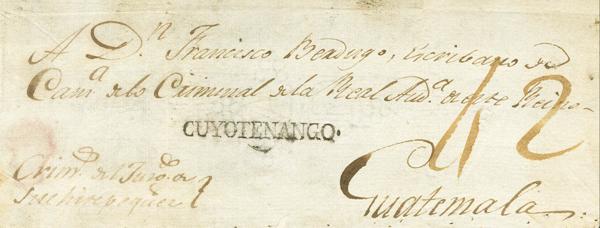 A D.n Francisco Berdugo, Escribano de
Cam.a de lo Criminal de la Real Aud.a de este Reino-
12
CUYOTENANGO.
Crim.l del Juzg.do de
Suchitepequez
Guatemala